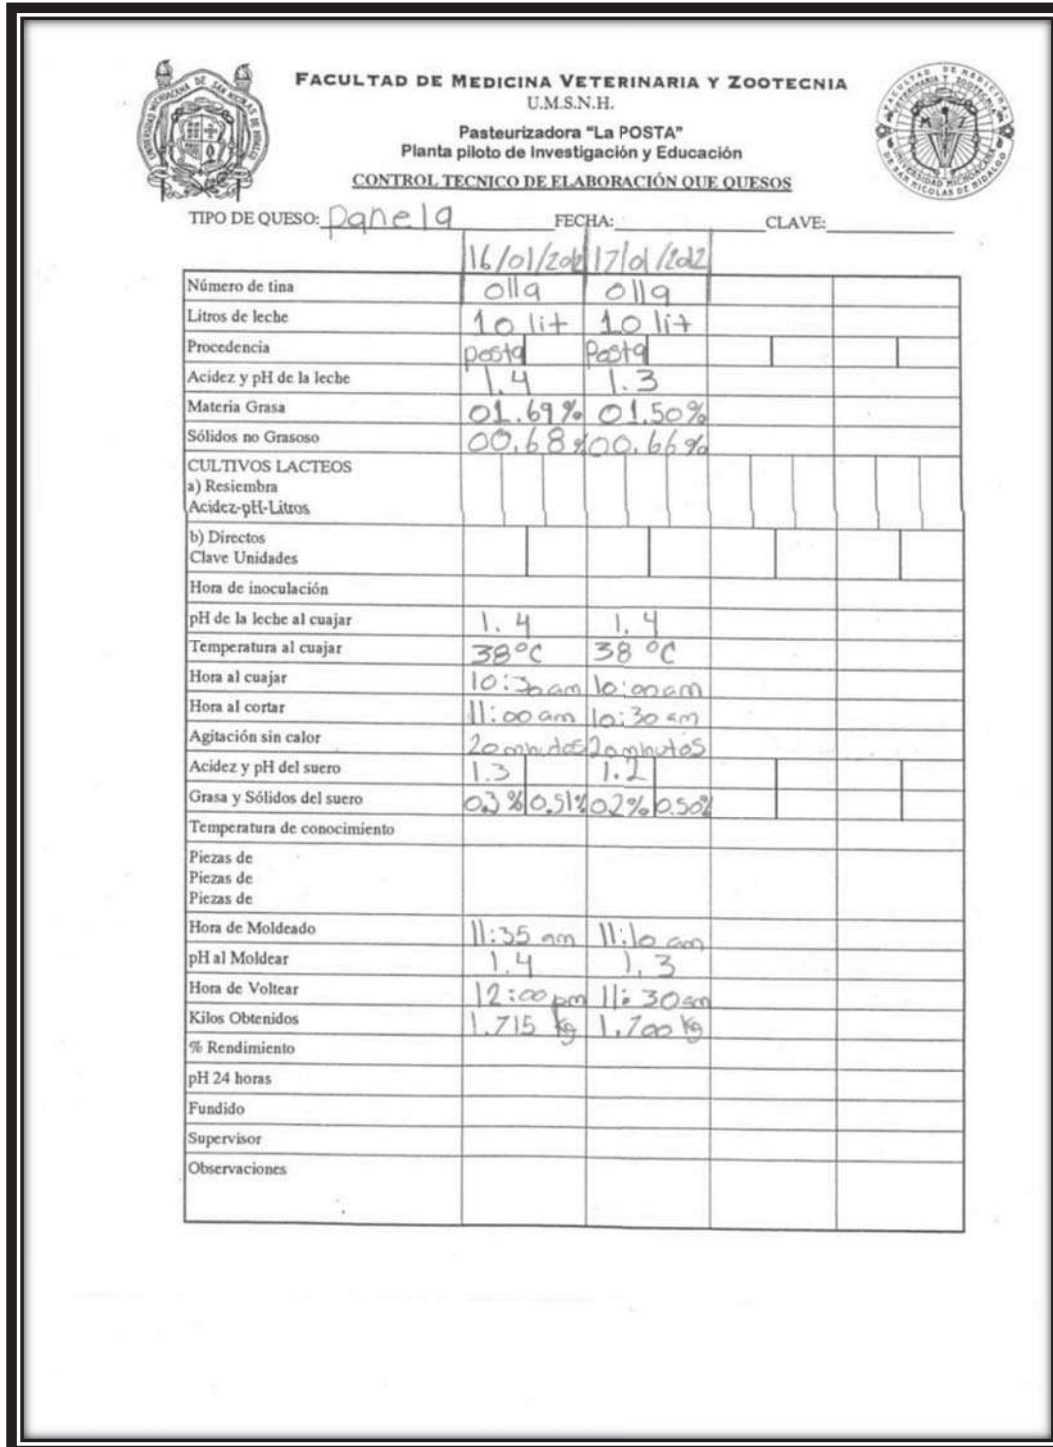 FACULTAD DE MEDICINA VETERINARIA Y ZOOTECNIA
U.M.S.N.H.
Pasteurizadora "La POSTA"
Planta piloto de Investigación y Educación
CONTROL TECNICO DE ELABORACIÓN QUE QUESOS
TIPO DE QUESO: panela FECHA: CLAVE:
16/01/2012 17/01/2012
Número de tina olla olla
Litros de leche 10 lit 10 lit
Procedencia posta Posta
Acidez y pH de la leche 1.4 1.3
Materia Grasa 01.69% 01.50%
Sólidos no Grasoso 00.68% 00.66%
CULTIVOS LACTEOS
a) Resiembra
Acidez-pH-Litros
b) Directos
Clave Unidades
Hora de inoculación
pH de la leche al cuajar 1.4 1.4
Temperatura al cuajar 38°C 38°C
Hora al cuajar 10:30am 10:00am
Hora al cortar 11:00 am 10:30 am
Agitación sin calor 20 minutos 20 minutos
Acidez y pH del suero 1.3 1.2
Grasa y Sólidos del suero 0.3% 0.51% 0.2% 0.50%
Temperatura de conocimiento
Piezas de
Piezas de
Piezas de
Hora de Moldeado 11:35 am 11:10 am
pH al Moldear 1.4 1.3
Hora de Voltear 12:00 pm 11:30am
Kilos Obtenidos 1.715 kg 1.700 kg
% Rendimiento
pH 24 horas
Fundido
Supervisor
Observaciones